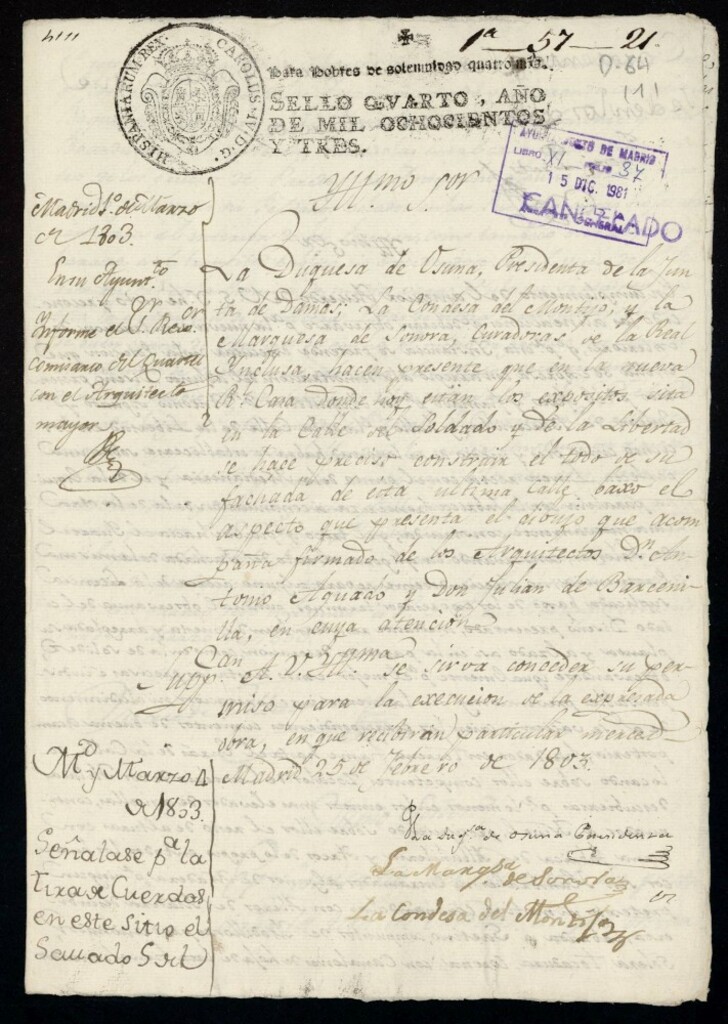 1ª - 57 - 21.
0-64
(11)
HISPANIARUM REX. CAROLUS. IV. D. G.
Para Pobres de solemnidad quatro mrs.
SELLO QVARTO, AÑO
DE MIL OCHOCIENTOS
Y TRES.
AYUNTAMIENTO DE MADRID
LIBRO XI FOLIO 37
15 DIC. 1981
CANCELADO
GENERAL
Yllmo Sor
Madrid 1º. de Marzo
de 1803.
En su Ayunt.to
Ynforme el Sr. Rexor
comisario del Quartel
con el Arquitecto
mayor
La Duquesa de Osuna, Presidenta de la Jun-
ta de Damas; La Condesa del Montijo, y la
Marquesa de Sonora, Curadoras de la Real
Inclusa, hacen presente que en la nueva
Rl. Casa donde hoy están los expositos sita
en la Calle del Soldado y de la Libertad
se hace preciso construir el todo de su
fachada de esta ultima Calle baxo el
aspecto que presenta el dibujo que acom-
paña firmado de los Arquitectos Dn. An-
tonio Aguado y Don Julian de Barceni-
lla, en cuya atencion
Suppcan A. V. Yllma se sirva conceder su per-
miso para la execucion de la expresada
obra, en que recibirán particular merced
Madrid 25 de Febrero de 1803.
Md. y Marzo 4
de 1803.
Señalase pa. la
tira de Cuerdas
en este sitio el
Savado 5 del
La Duqsa. de Osuna Presidenta
La Marqsa. de Sonora
La Condesa del Montijo